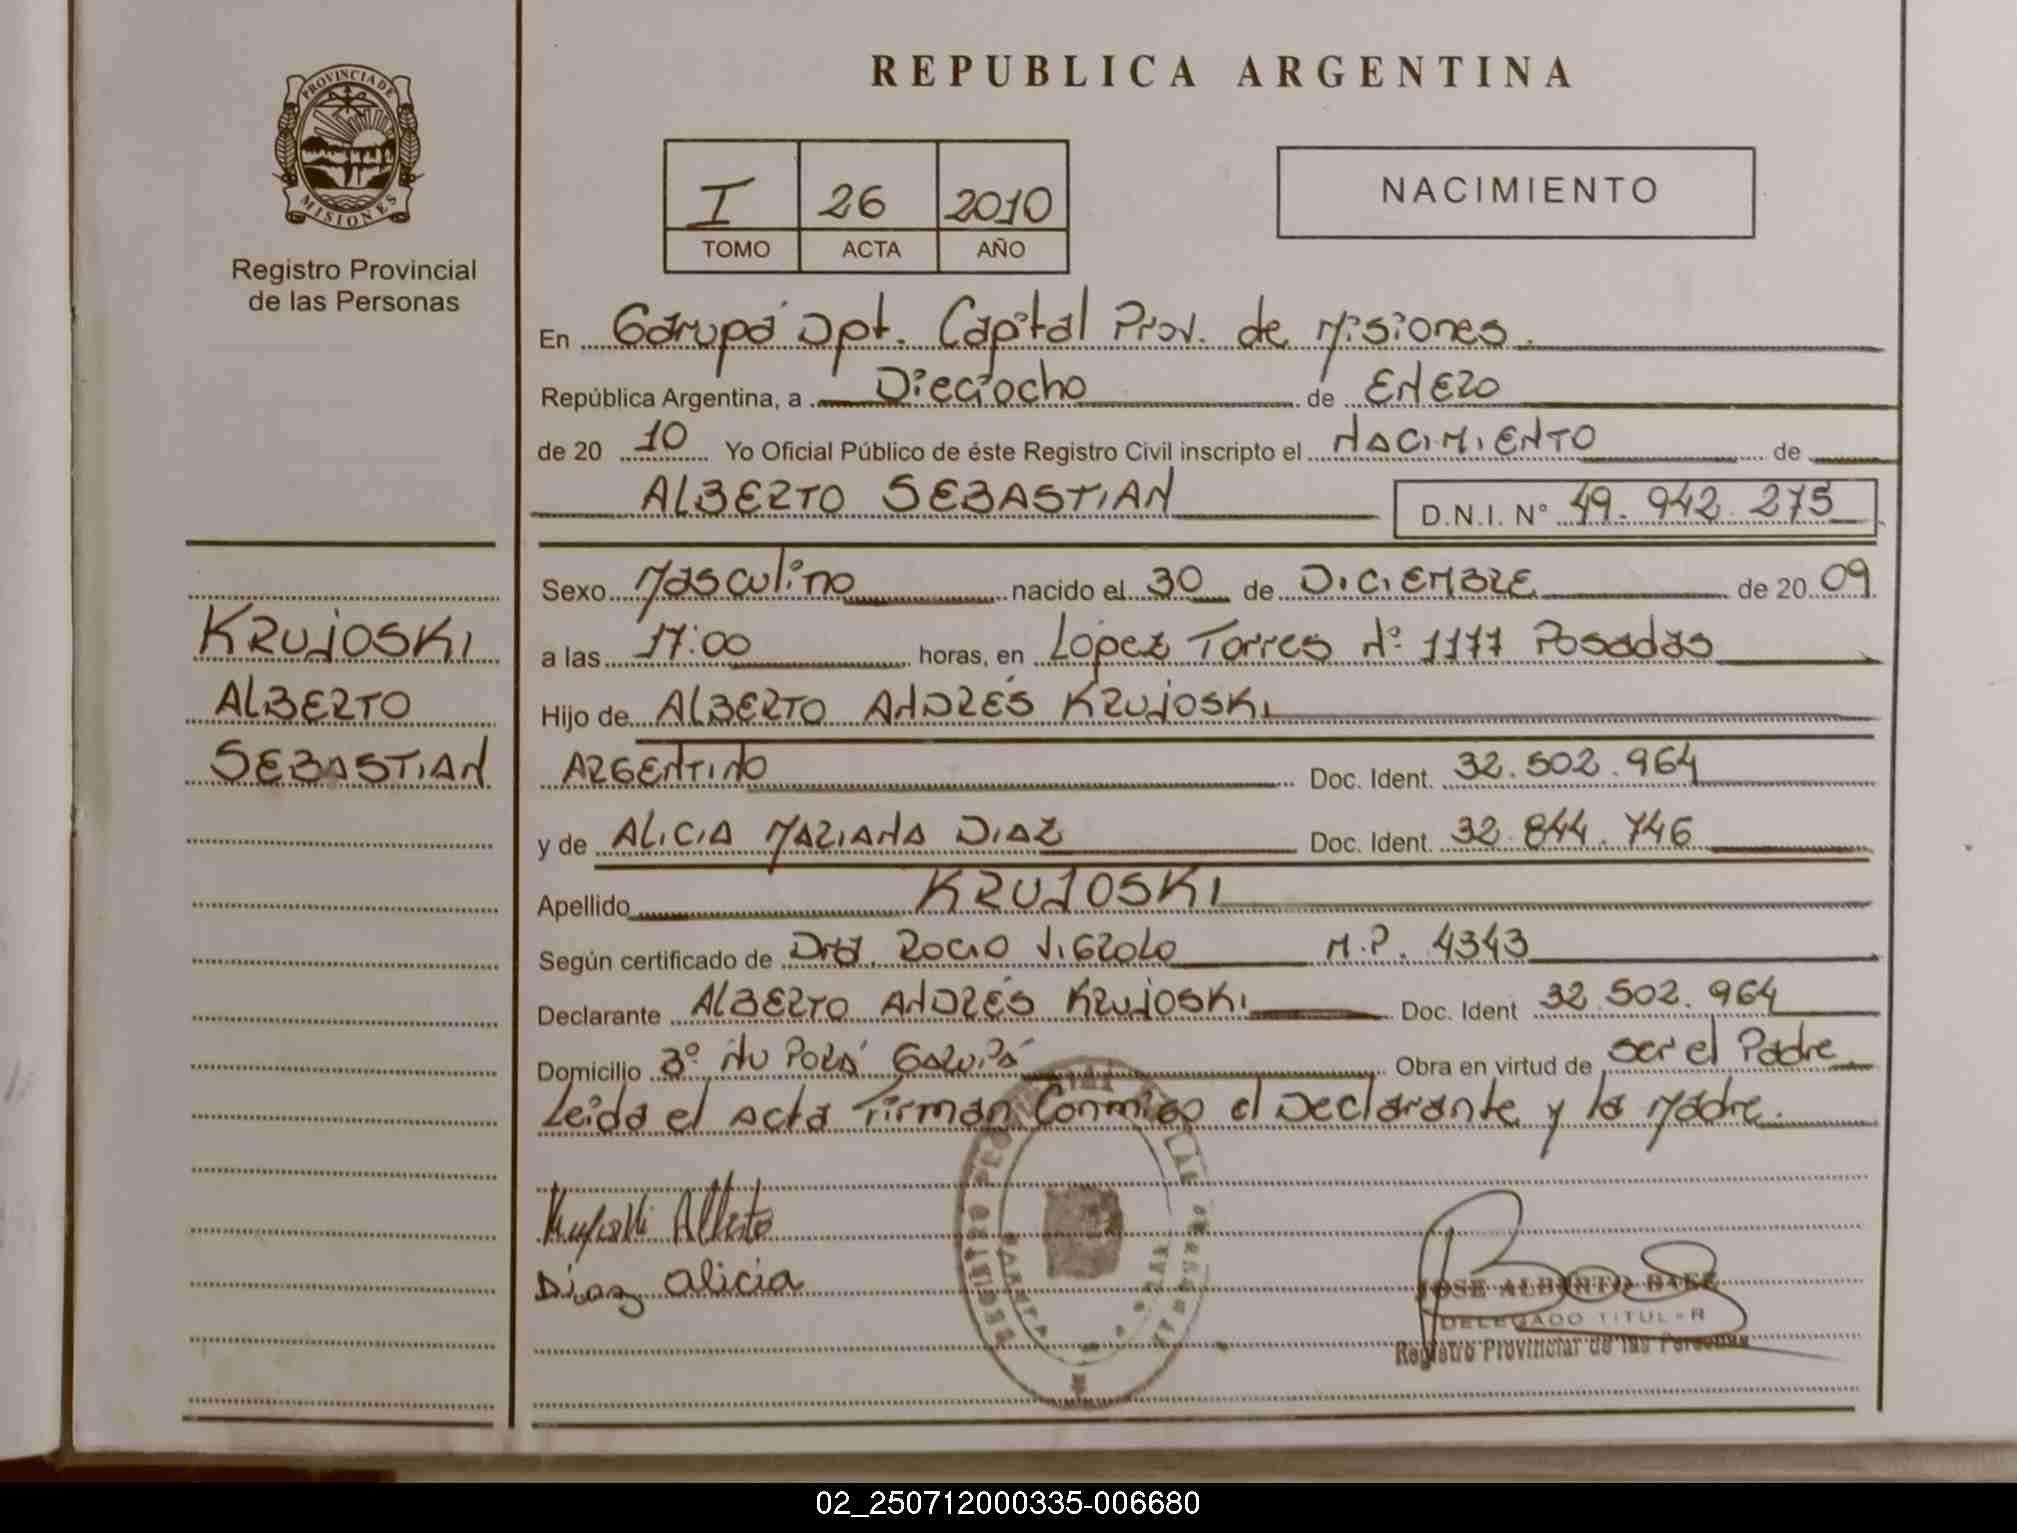 PROVINCIA DE
MISIONES
Registro Provincial
de las Personas
KRUJOSKI
ALBERTO
SEBASTIAN
REPUBLICA ARGENTINA
I 26 2010
TOMO ACTA AÑO
NACIMIENTO
En Garupá Dpt. Capital Prov. de Misiones.
República Argentina, a Dieciocho de ENERO
de 20 10 Yo Oficial Público de éste Registro Civil inscripto el NACIMIENTO de
ALBERTO SEBASTIAN D.N.I. N° 49.942.275
Sexo Masculino nacido el 30 de DICIEMBRE de 20 09
a las 17:00 horas, en López Torres N° 1177 Posadas
Hijo de ALBERTO ANDRÉS KRUJOSKI
ARGENTINO Doc. Ident. 32.502.964
y de ALICIA MARIANA DIAZ Doc. Ident. 32.844.746
Apellido KRUJOSKI
Según certificado de Dra. ROCIO VIGROLO M.P. 4343
Declarante ALBERTO ANDRÉS KRUJOSKI Doc. Ident 32.502.964
Domicilio B° ÑU PORÁ GARUPÁ Obra en virtud de ser el Padre
Leída el acta firman Conmigo el Declarante y la Madre.
Krujoski Alberto
Diaz Alicia
JOSE ALBERTO BAEZ
DELEGADO TITULAR
Registro Provincial de las Personas
02_250712000335-006680